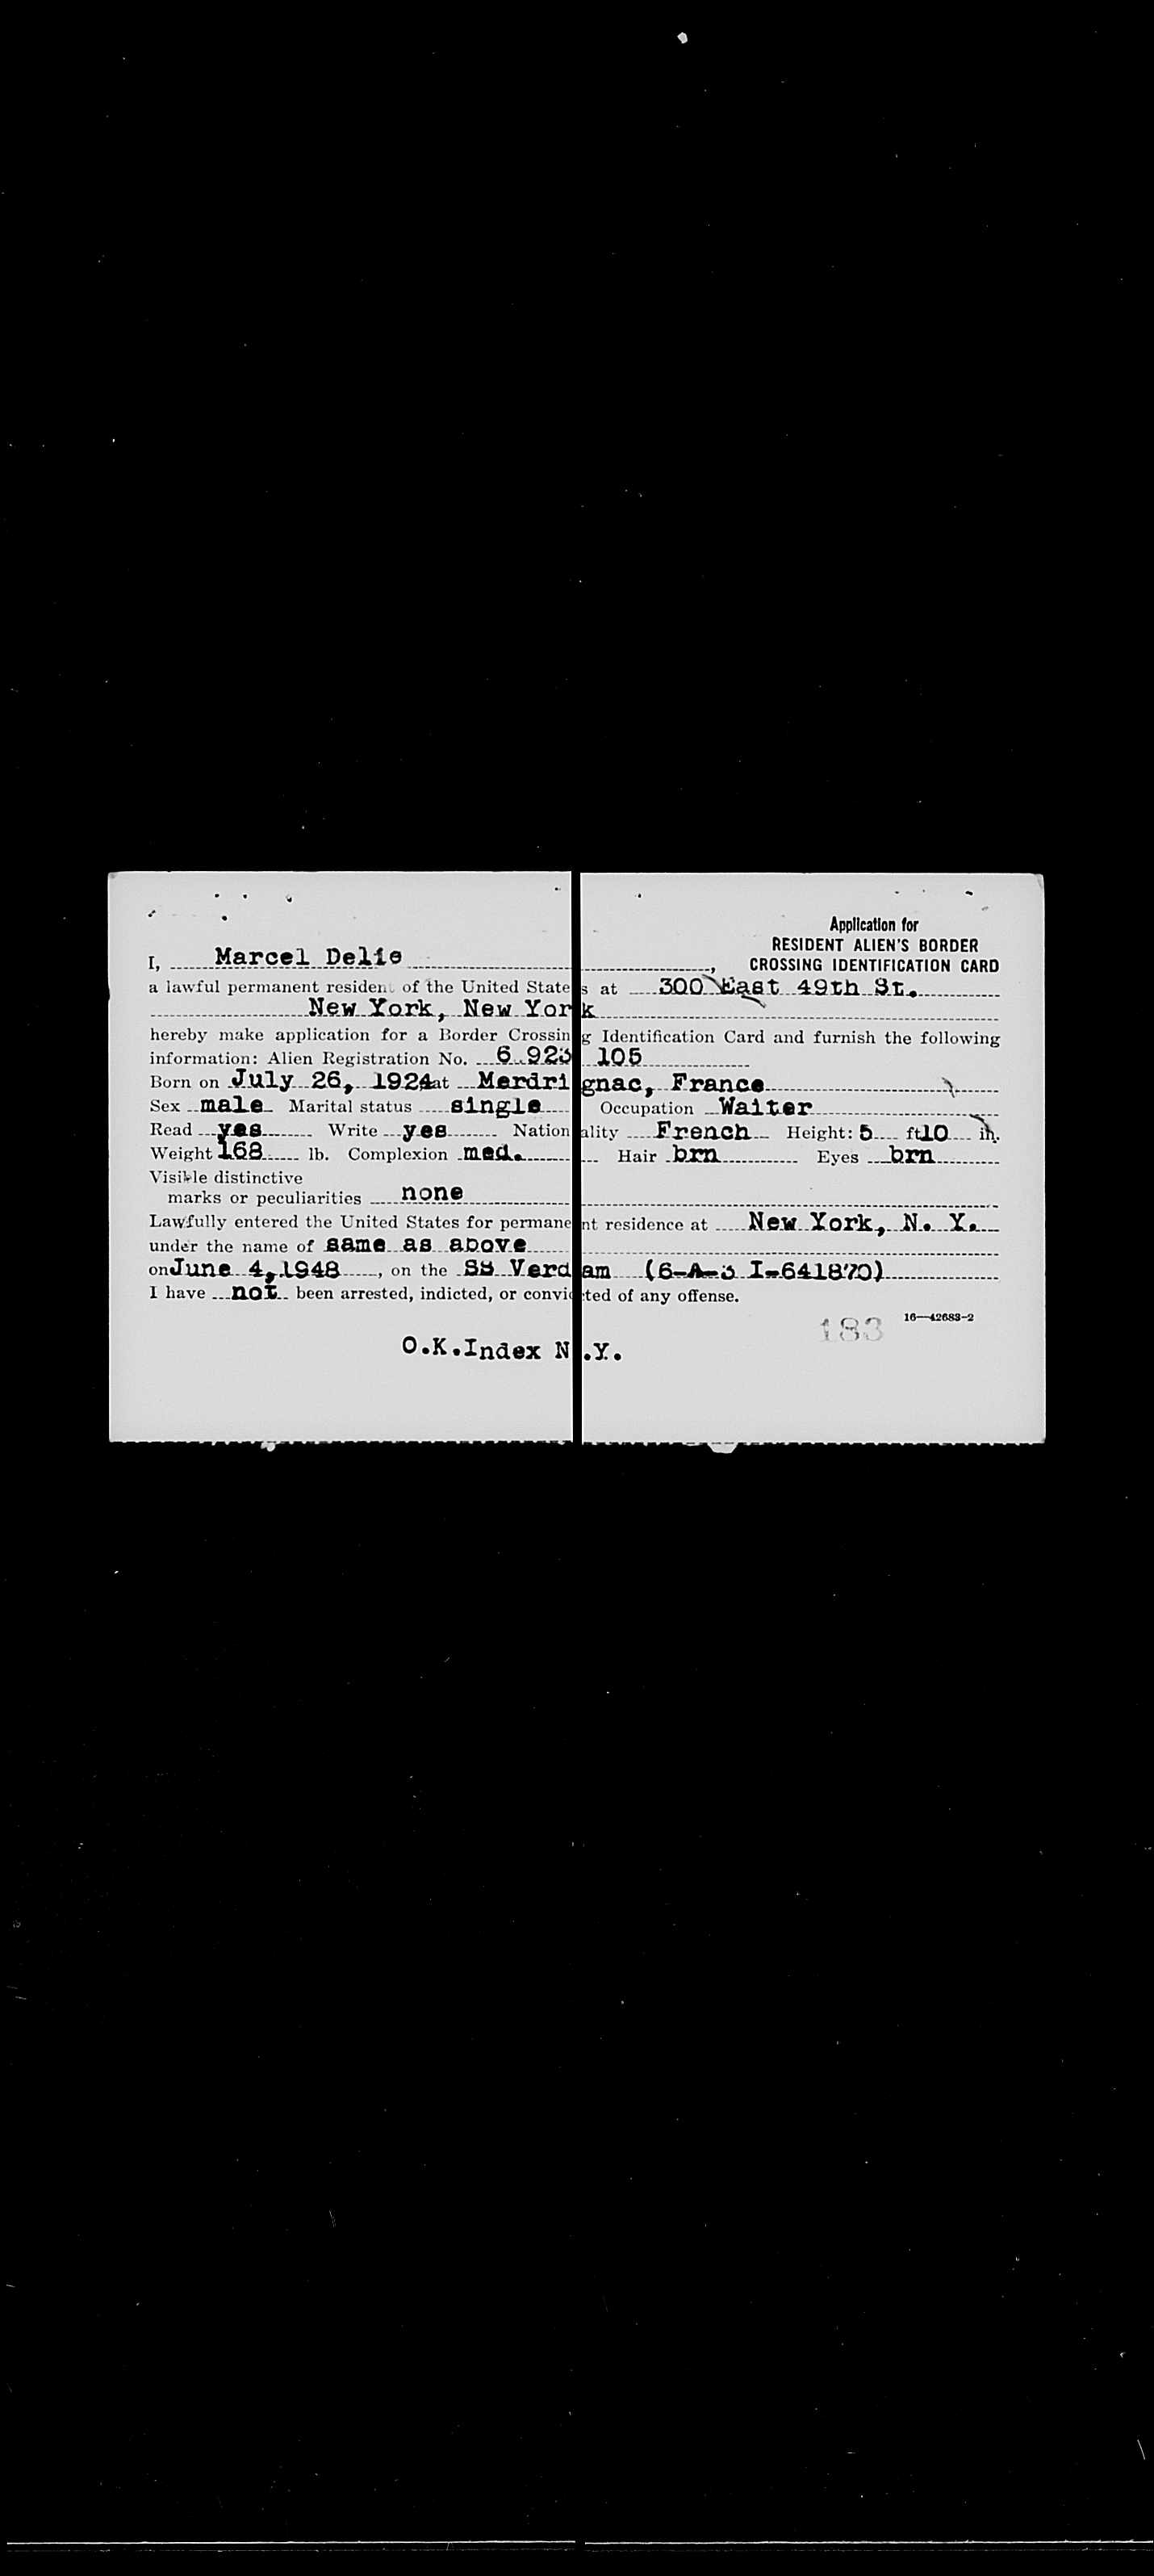 Application for
RESIDENT ALIEN'S BORDER
CROSSING IDENTIFICATION CARD
I, Marcel Delie,
a lawful permanent resident of the United States at 300 East 49th St.
New York, New York
hereby make application for a Border Crossing Identification Card and furnish the following
information: Alien Registration No. 6 923 105
Born on July 26, 1924 at Merdrignac, France
Sex male Marital status single Occupation Waiter
Read yes Write yes Nationality French Height: 5 ft 10 in.
Weight 168 lb. Complexion med. Hair brn Eyes brn
Visible distinctive
marks or peculiarities none
Lawfully entered the United States for permanent residence at New York, N. Y.
under the name of same as above
on June 4, 1948, on the SS Verdam (6-A-3 I-641870)
I have not been arrested, indicted, or convicted of any offense.
16—42683-2
183
O.K.Index N.Y.